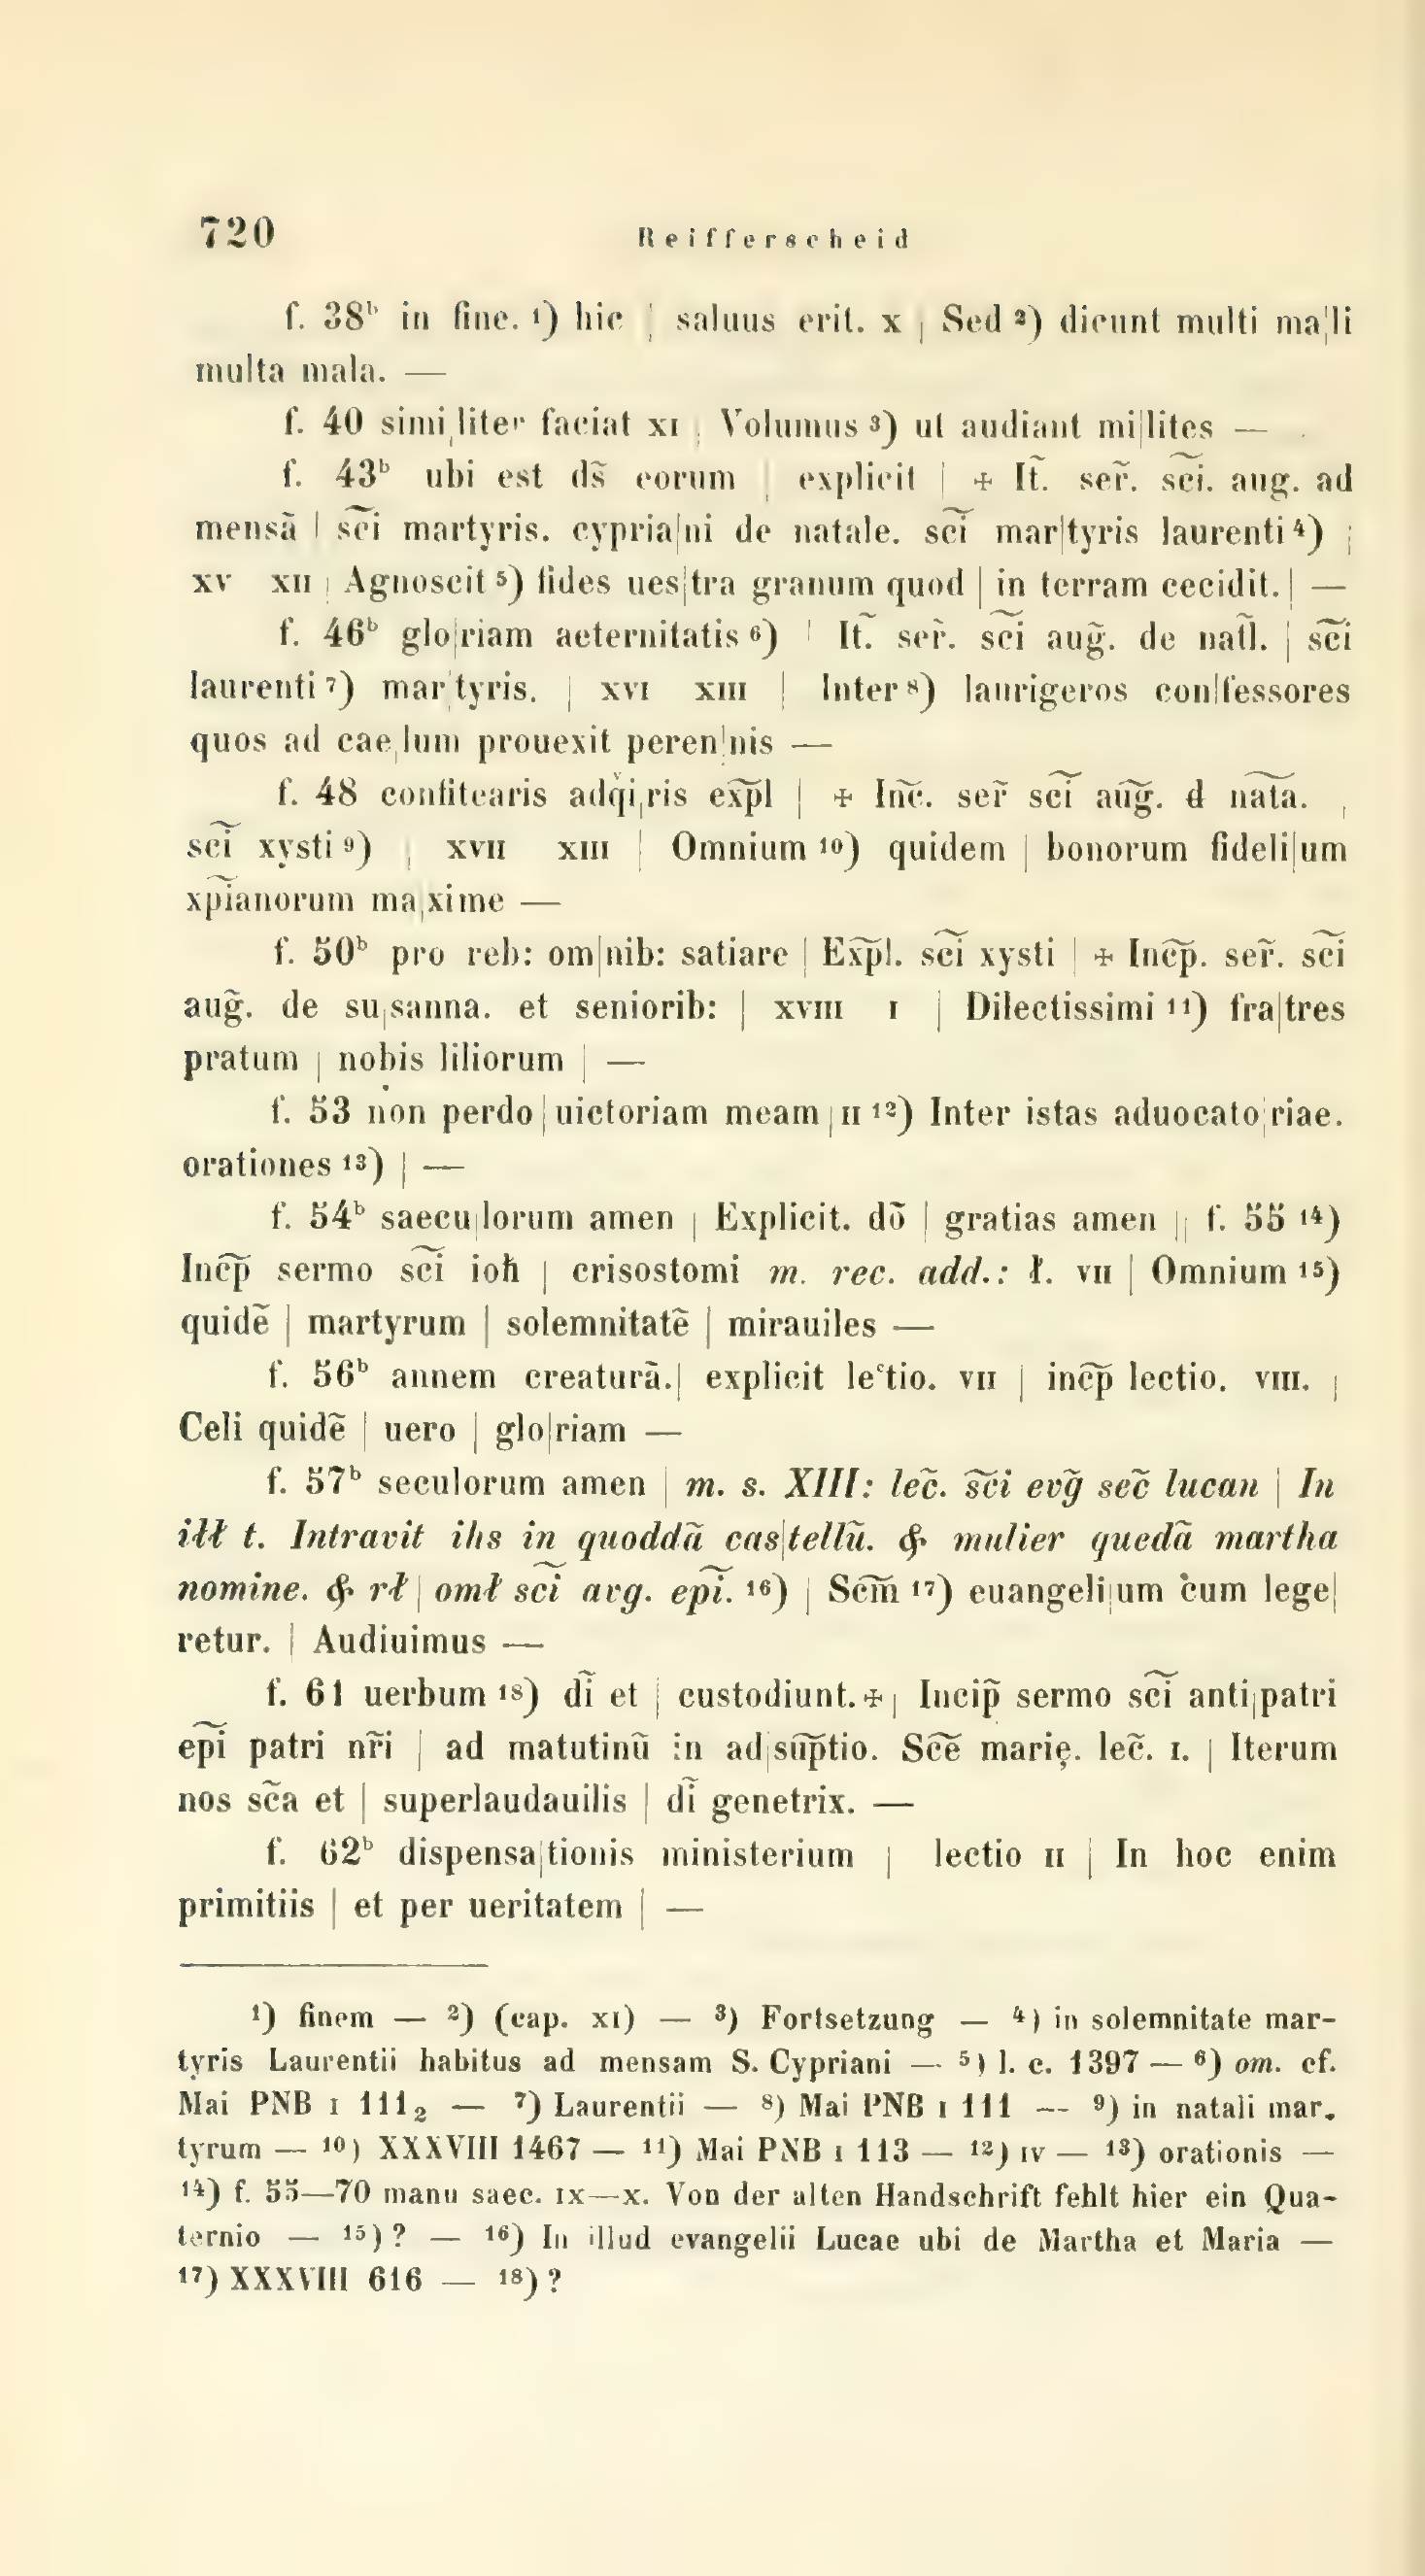 720 Reifferscheid
f. 38ᵇ in fine. ¹) hic | saluus erit. x | Sed ²) dicunt multi ma|li
multa mala. —
f. 40 simi|liter faciat xi | Volumus ³) ut audiant mi|lites —
f. 43ᵇ ubi est ds̃ eorum | explicit | ✠ It̃. ser̃. sc͠i. aug. ad
mensã | sc͠i martyris. cypria|ni de natale. sc͠i mar|tyris laurenti ⁴) |
xv xii | Agnoscit ⁵) fides ues|tra granum quod | in terram cecidit. | —
f. 46ᵇ glo|riam aeternitatis ⁶) | It̃. ser̃. sc͠i aug̃. de natl̃. | sc͠i
laurenti ⁷) mar|tyris. | xvi xiii | Inter ⁸) laurigeros con|fessores
quos ad cae|lum prouexit peren|nis —
f. 48 confitearis adqͮi|ris ex͠pl | ✠ Iñc. ser̃ sc͠i au͠g. đ na͠ta. |
sc͠i xysti ⁹) | xvii xiii | Omnium ¹⁰) quidem | bonorum fideli|um
xp͠ianorum ma|xime —
f. 50ᵇ pro reb: om|nib: satiare | Ex͠pl. sc͠i xysti | ✠ Inc͠p. ser̃. sc͠i
aug̃. de su|sanna. et seniorib: | xviii i | Dilectissimi ¹¹) fra|tres
pratum | nobis liliorum | —
f. 53 non perdo|uictoriam meam | ii ¹²) Inter istas aduocato|riae.
orationes ¹³) | —
f. 54ᵇ saecu|lorum amen | Explicit. dõ | gratias amen || f. 55 ¹⁴)
Inc͠p sermo sc͠i ioħ | crisostomi m. rec. add.: ł. vii | Omnium ¹⁵)
quidẽ | martyrum | solemnitatẽ | mirauiles —
f. 56ᵇ annem creaturã. | explicit leᶜtio. vii | inc͠p lectio. viii. |
Celi quidẽ | uero | glo|riam —
f. 57ᵇ seculorum amen | m. s. XIII: lec̃. s͠ci evg̃ sec̃ lucan | In
iłł t. Intravit ihs in quoddã cas|tellũ. & mulier quedã martha
nomine. & rł | omł sc͠i avg. ep͠i. ¹⁶) | Sc͠m ¹⁷) euangeli|um cum lege|
retur. | Audiuimus —
f. 61 uerbum ¹⁸) dĩ et | custodiunt. ✠ | Incip̃ sermo sc͠i anti|patri
ep͠i patri nr̃i | ad matutinũ in ad|su͠ptio. Sc͠e marię. lec̃. i. | Iterum
nos sc̃a et | superlaudauilis | dĩ genetrix. —
f. 62ᵇ dispensa|tionis ministerium | lectio ii | In hoc enim
primitiis | et per ueritatem | —
¹) finem — ²) (cap. xi) — ³) Fortsetzung — ⁴) in solemnitate mar-
tyris Laurentii habitus ad mensam S. Cypriani — ⁵) l. c. 1397 — ⁶) om. cf.
Mai PNB i 111₂ — ⁷) Laurentii — ⁸) Mai PNB i 111 — ⁹) in natali mar.
tyrum — ¹⁰) XXXVIII 1467 — ¹¹) Mai PNB i 113 — ¹²) iv — ¹³) orationis —
¹⁴) f. 55—70 manu saec. ix—x. Von der alten Handschrift fehlt hier ein Qua-
ternio — ¹⁵) ? — ¹⁶) In illud evangelii Lucae ubi de Martha et Maria —
¹⁷) XXXVIII 616 — ¹⁸) ?